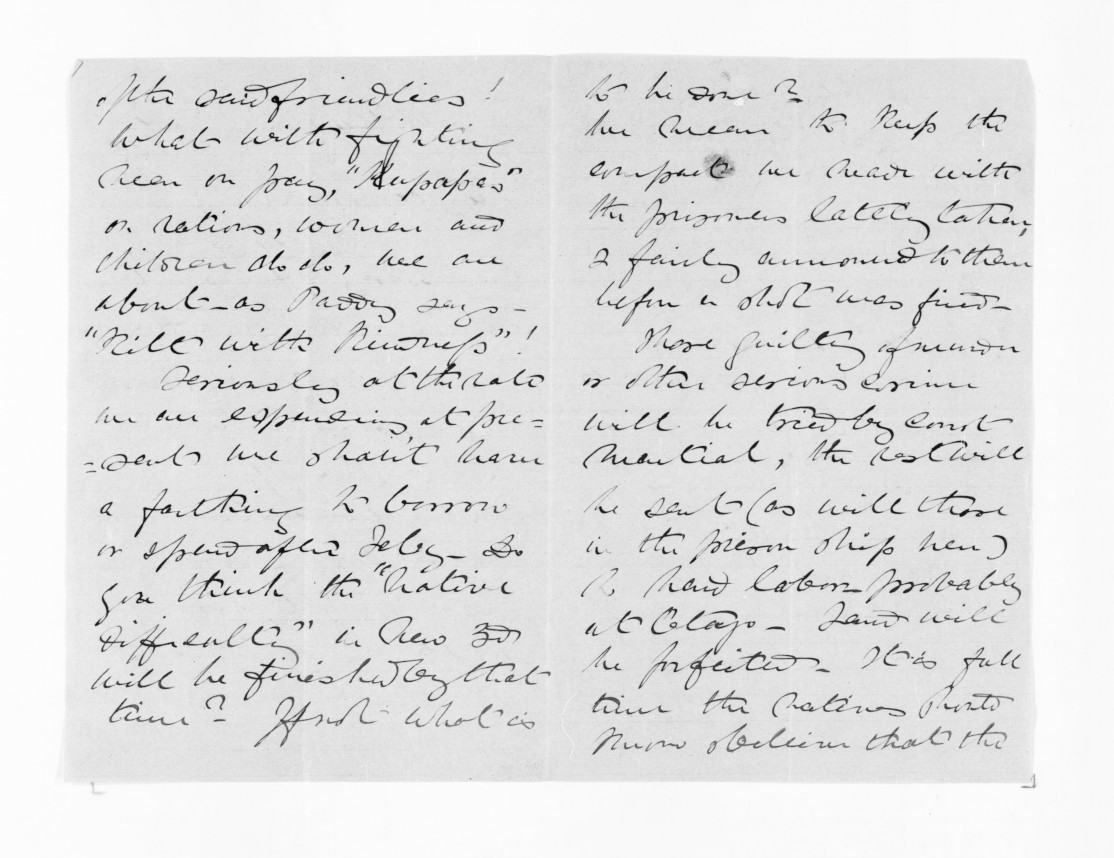 of the said friendlies!
What with fighting
men on pay, "Kupapas"
on rations, women and
children do do, we are
about - as Paddy says -
"Kill with Kindness"!
Seriously at the rate
we are expending at pre=
=sent we shan't have
a farthing to borrow
or spend after Feby - Do
you think the "Native
difficulty" in New Zd
will be finished by that
time? If not what is
to be done?
We mean to keep the
compact we made with
the prisoners lately taken,
& fairly announced to them
before a shot was fired -
Those guilty of murder
or other serious crime
will be tried by Court
Martial, the rest will
be sent (as will those
in the prison ship here)
to hard labor probably
at Otago - Land will
be forfeited - It is full
time the natives should
know that the